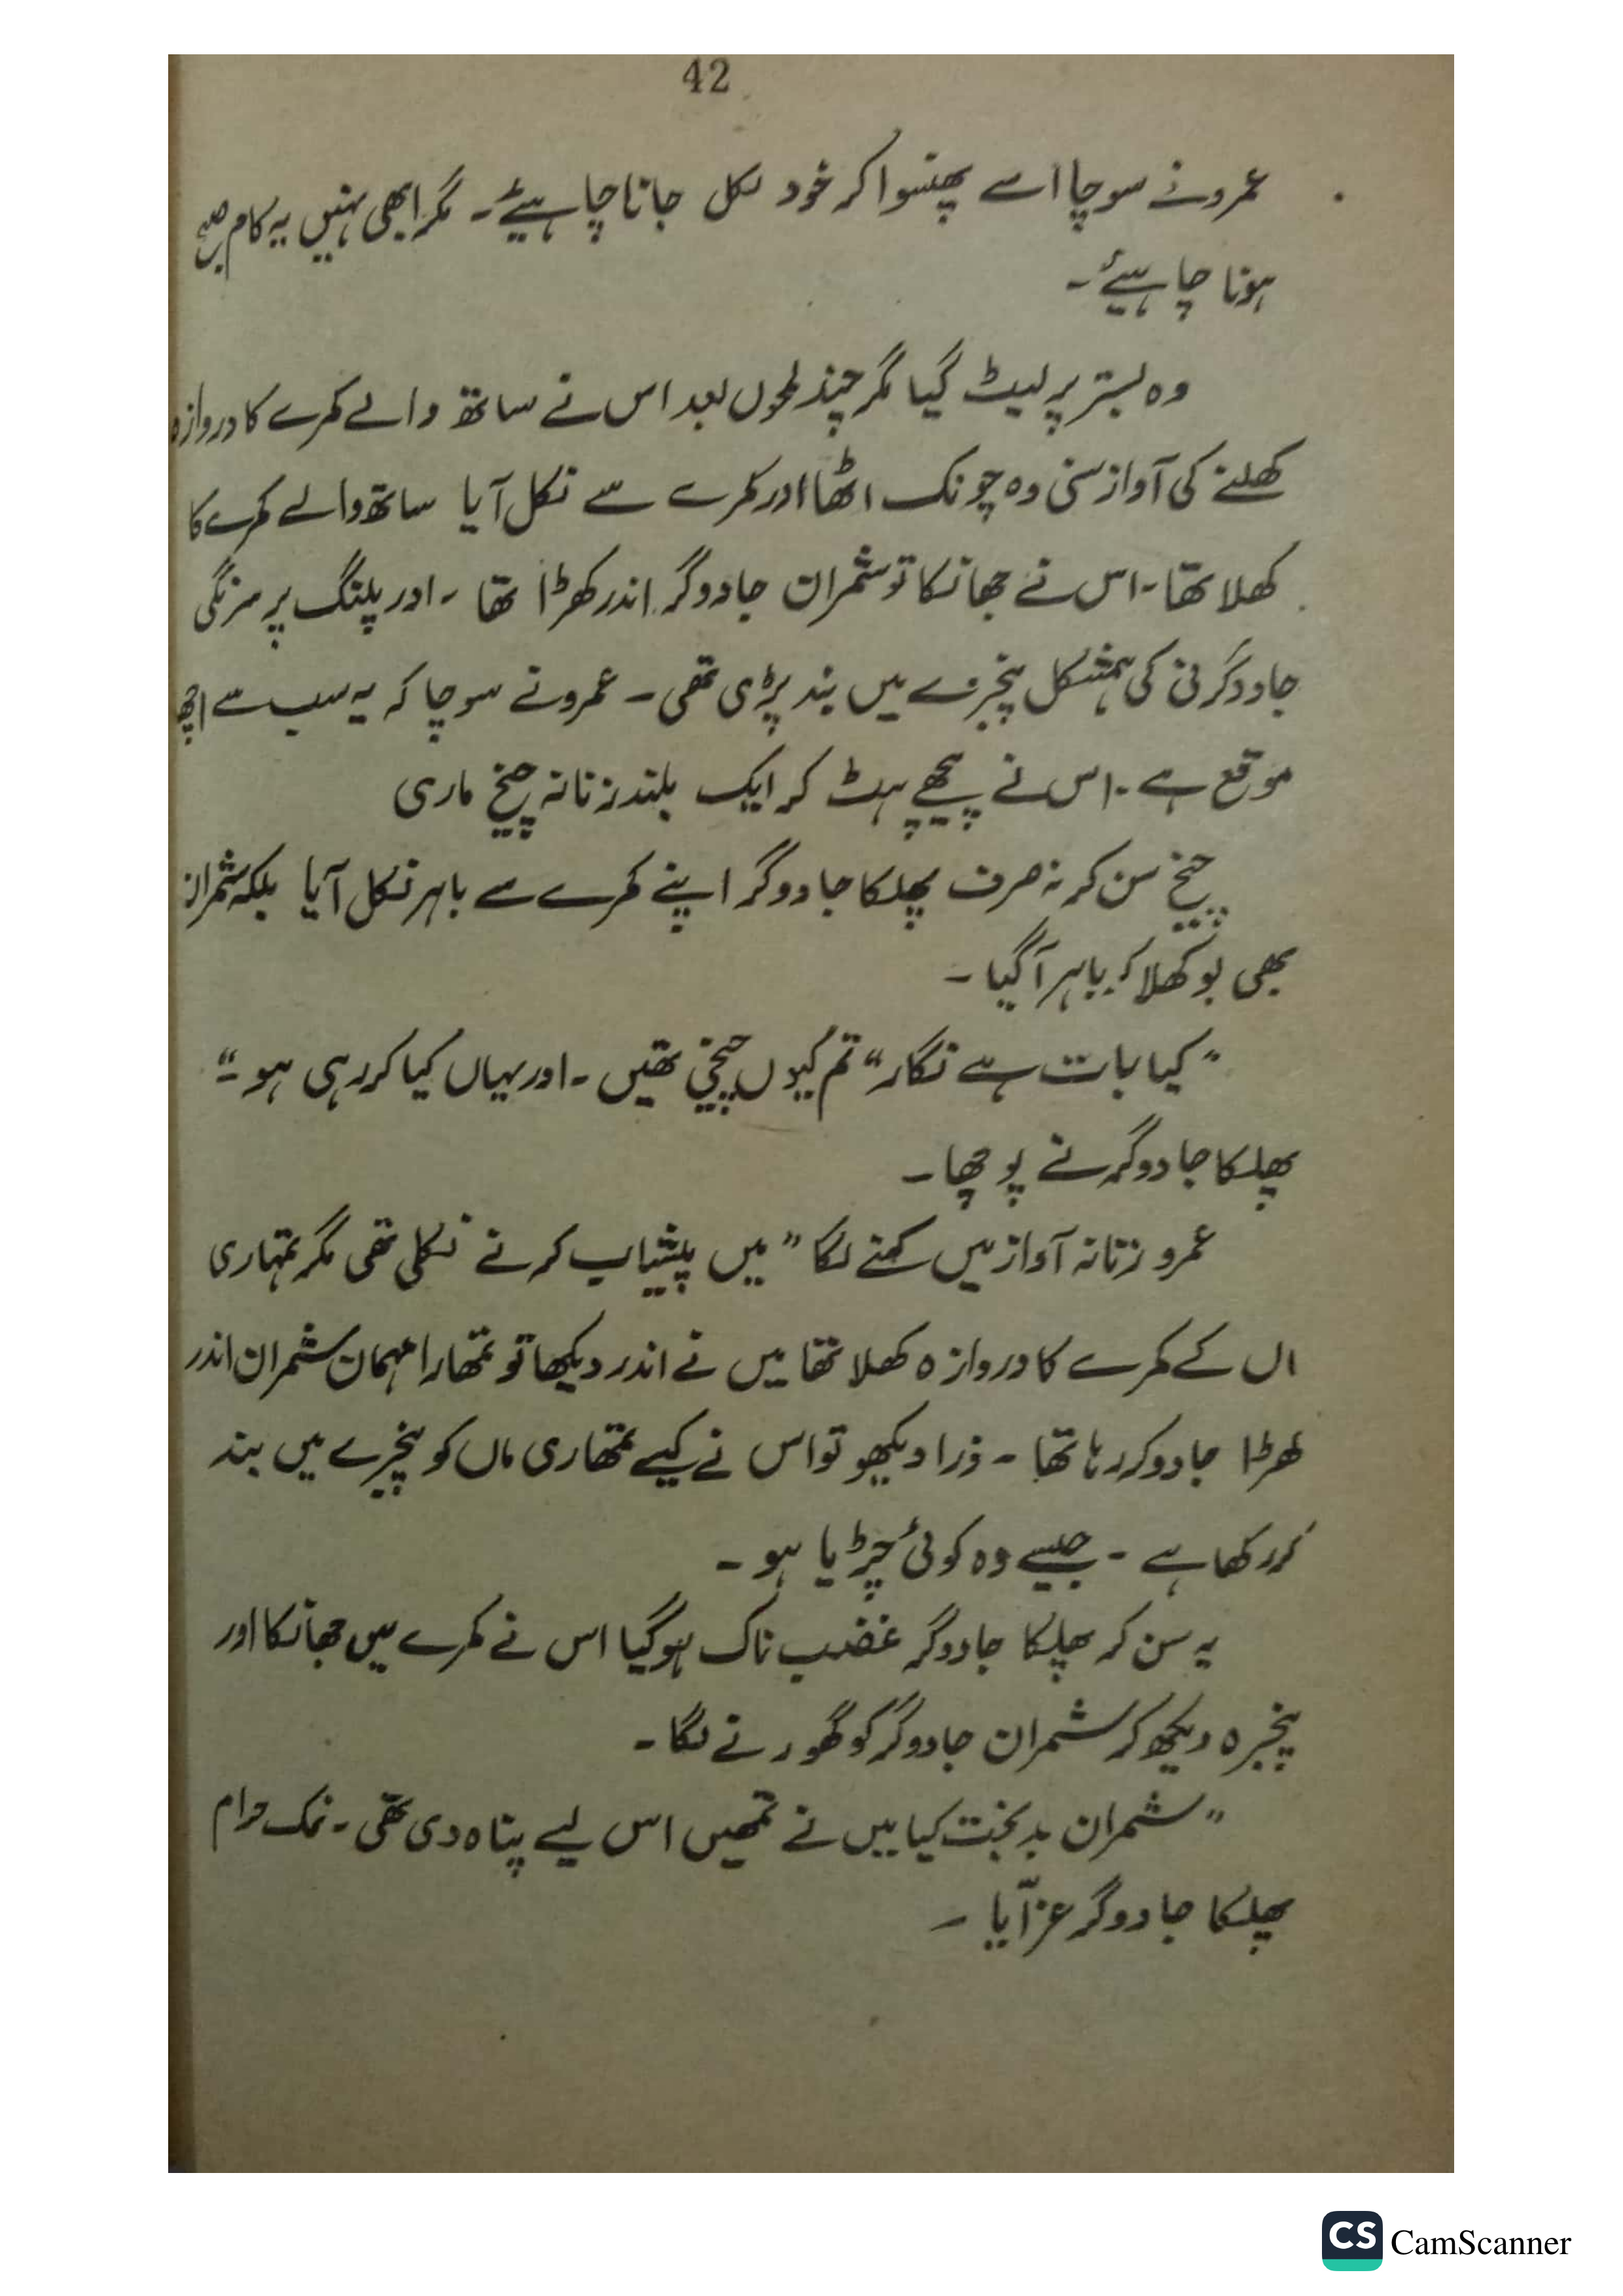 42
عمرو نے سوچا اسے پھنسوا کر خود نکل جانا چاہیئے۔ مگر ابھی نہیں یہ کام صبح
ہونا چاہیئے۔
وہ بستر پر لیٹ گیا مگر چند لمحوں بعد اس نے ساتھ والے کمرے کا دروازہ
کھلنے کی آواز سنی وہ چونک اٹھا اور کمرے سے نکل آیا ساتھ والے کمرے کا
کھلا تھا۔ اس نے جھانکا تو شمران جادوگر اندر کھڑا تھا ۔ اور پلنگ پر سرنگی
جادوگرنی کی ہمشکل پنجرے میں بند پڑی تھی ۔ عمرو نے سوچا کہ یہ سب سے اچھا
موقع ہے ۔ اس نے پیچھے ہٹ کر ایک بلند زنانہ چیخ ماری
چیخ سن کر نہ صرف پھلکا جادوگر اپنے کمرے سے باہر نکل آیا بلکہ شمران
بھی بوکھلا کر باہر آ گیا ۔
”کیا بات ہے نگار“ تم کیوں چیخی تھیں ۔ اور یہاں کیا کر رہی ہو ۔“
پھلکا جادوگر نے پوچھا ۔
عمرو زنانہ آواز میں کہنے لگا ” میں پیشاب کرنے نکلی تھی مگر تمہاری
اں کے کمرے کا دروازہ کھلا تھا میں نے اندر دیکھا تو تمھارا مہمان شمران اندر
کھڑا جادو کر رہا تھا ۔ ذرا دیکھو تو اس نے کیسے تمھاری ماں کو پنجرے میں بند
کر رکھا ہے ۔ جیسے وہ کوئی چڑیا ہو ۔
یہ سن کر پھلکا جادوگر غضب ناک ہو گیا اس نے کمرے میں جھانکا اور
پنجرہ دیکھ کر شمران جادوگر کو گھورنے لگا ۔
”شمران بدبخت کیا میں نے تمھیں اس لیے پناہ دی تھی ۔ نمک حرام
پھلکا جادوگر غرّایا ۔
CS CamScanner